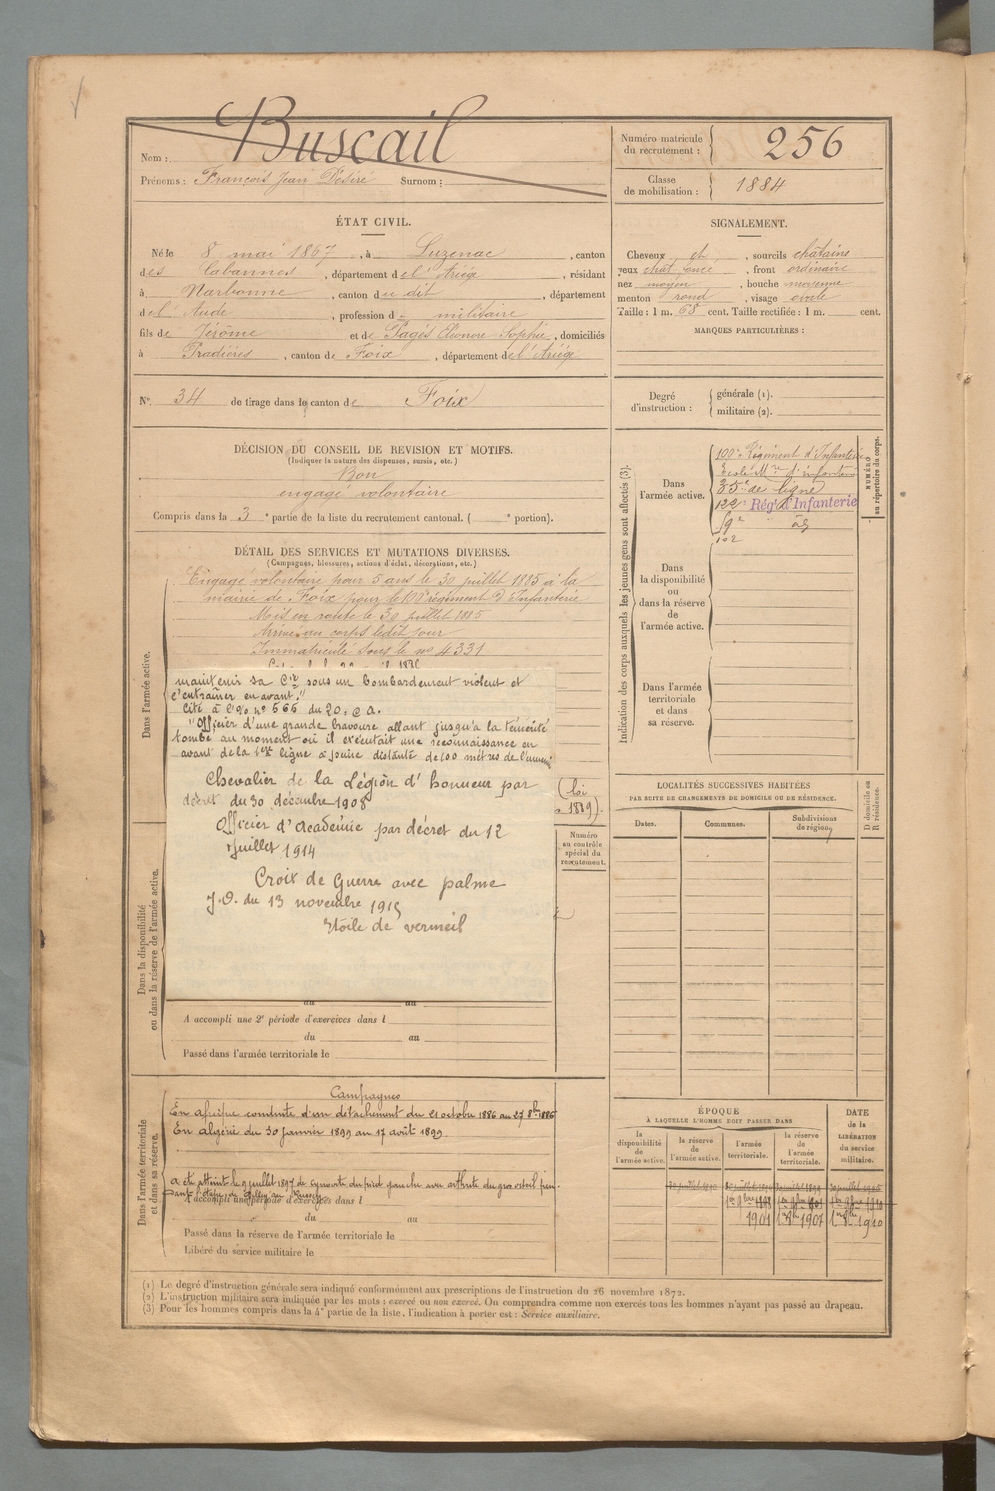 Nom : Buscail
Prénoms : François Jean Désiré Surnom :
Numéro matricule du recrutement : 256
Classe de mobilisation : 1884
ÉTAT CIVIL.
Né le 8 mai 1867, à Luzenac, canton
des Cabannes, département de l'Ariège, résidant
à Narbonne, canton du dit, département
de l'Aude, profession de militaire
fils de Jérôme et de Pagés Eléonore Sophie, domiciliés
à Pradières, canton de Foix, département de l'Ariège
N° 34 de tirage dans le canton de Foix
SIGNALEMENT.
Cheveux et, sourcils châtains
yeux chat. foncé, front ordinaire
nez moyen, bouche moyenne
menton rond, visage ovale
Taille : 1 m. 68 cent. Taille rectifiée : 1 m. cent.
MARQUES PARTICULIÈRES :
Degré d'instruction : générale (1).
militaire (2).
DÉCISION DU CONSEIL DE REVISION ET MOTIFS.
(Indiquer la nature des dispenses, sursis, etc.)
Bon
engagé volontaire
Compris dans la 3e partie de la liste du recrutement cantonal. ( e portion).
DÉTAIL DES SERVICES ET MUTATIONS DIVERSES.
(Campagnes, blessures, actions d'éclat, décorations, etc.)
Dans l'armée active.
Engagé volontaire pour 5 ans le 30 juillet 1885 à la
mairie de Foix pour le 100e régiment d'Infanterie
Mis en route le 30 juillet 1885
Arrivé au corps ledit jour
Immatriculé sous le no 4331
maintenir sa Cie sous un bombardement violent et
l'entraîner en avant."
Cité à l'o/o no 566 du 20e C.A.
"Officier d'une grande bravoure allant jusqu'à la témérité
tombé au moment où il exécutait une reconnaissance en
avant de la 1ère ligne à peine distante de 100 mètres de l'ennemi
Chevalier de la Légion d'honneur par
décret du 30 décembre 1908
Officier d'Académie par décret du 12
Juillet 1914
Croix de Guerre avec palme
J.O. du 13 novembre 1915
Etoile de vermeil
(loi
1889)
Numéro au contrôle spécial du recrutement.
Dans la disponibilité ou dans la réserve de l'armée active.
du au
A accompli une 2e période d'exercices dans l
du au
Passé dans l'armée territoriale le
Dans l'armée territoriale et dans sa réserve.
Campagnes
En afrique conduite d'un détachement du 21 octobre 1886 au 27 8bre 1886
En algérie du 30 janvier 1899 au 17 août 1899.
a été atteint le 9 juillet 1897 de synovite du pied gauche avec arthrite du gros orteil
A accompli une période d'exercices dans l
du au
Passé dans la réserve de l'armée territoriale le
Libéré du service militaire le
Indication des corps auxquels les jeunes gens sont affectés (3).
Dans l'armée active.
100e Régiment d'Infanterie
Ecole Mre d'infanterie
35e de ligne
122e Rég. d'Infanterie
59e
102
NUMÉRO au répertoire du corps.
Dans la disponibilité ou dans la réserve de l'armée active.
Dans l'armée territoriale et dans sa réserve.
LOCALITÉS SUCCESSIVES HABITÉES
PAR SUITE DE CHANGEMENTS DE DOMICILE OU DE RÉSIDENCE.
Dates. Communes. Subdivisions de région.
D domicile ou R résidence.
ÉPOQUE
À LAQUELLE L'HOMME DOIT PASSER DANS
la disponibilité de l'armée active. la réserve de l'armée active. l'armée territoriale. la réserve de l'armée territoriale.
DATE de la LIBÉRATION du service militaire.
1901 1er 9bre 1907 1er 9bre 1910
(1) Le degré d'instruction générale sera indiqué conformément aux prescriptions de l'instruction du 26 novembre 1872.
(2) L'instruction militaire sera indiquée par les mots : exercé ou non exercé. On comprendra comme non exercés tous les hommes n'ayant pas passé au drapeau.
(3) Pour les hommes compris dans la 4e partie de la liste, l'indication à porter est : Service auxiliaire.